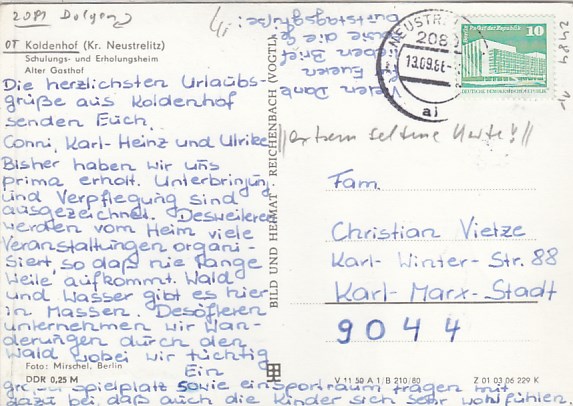 2081 Dolgen
OT Koldenhof (Kr. Neustrelitz)
Schulungs- und Erholungsheim
Alter Gasthof
Die herzlichsten Urlaubs-
grüße aus Koldenhof
senden Euch
Conni, Karl-Heinz und Ulrike
Bisher haben wir uns
prima erholt. Unterbringung
und Verpflegung sind
ausgezeichnet. Desweiteren
werden vom Heim viele
Veranstaltungen organi-
siert, so daß nie lange
Weile aufkommt. Wald
und Wasser gibt es hier
in Massen. Desöfteren
unternehmen wir Wan-
derungen durch den
Wald wobei wir tüchtig
Ein
Spielplatz sowie ein Sportraum tragen mit
dazu bei, daß auch die Kinder sich sehr wohlfühlen.
Foto: Mirschel, Berlin
DDR 0,25 M
BILD UND HEIMAT · REICHENBACH (VOGTL
Vielen Dank
Eueren
lieben Brief
die
burtstagsgrüße!
NEUSTR
208
13.09.86
ai
10
DEUTSCHE DEMOKRATISCHE REPUBLIK
2484
//extrem seltene Karte!//
Fam.
Christian Vietze
Karl-Winter-Str. 88
Karl-Marx-Stadt
9044
V 11 50 A 1/B 210/80
Z 01 03 06 229 K